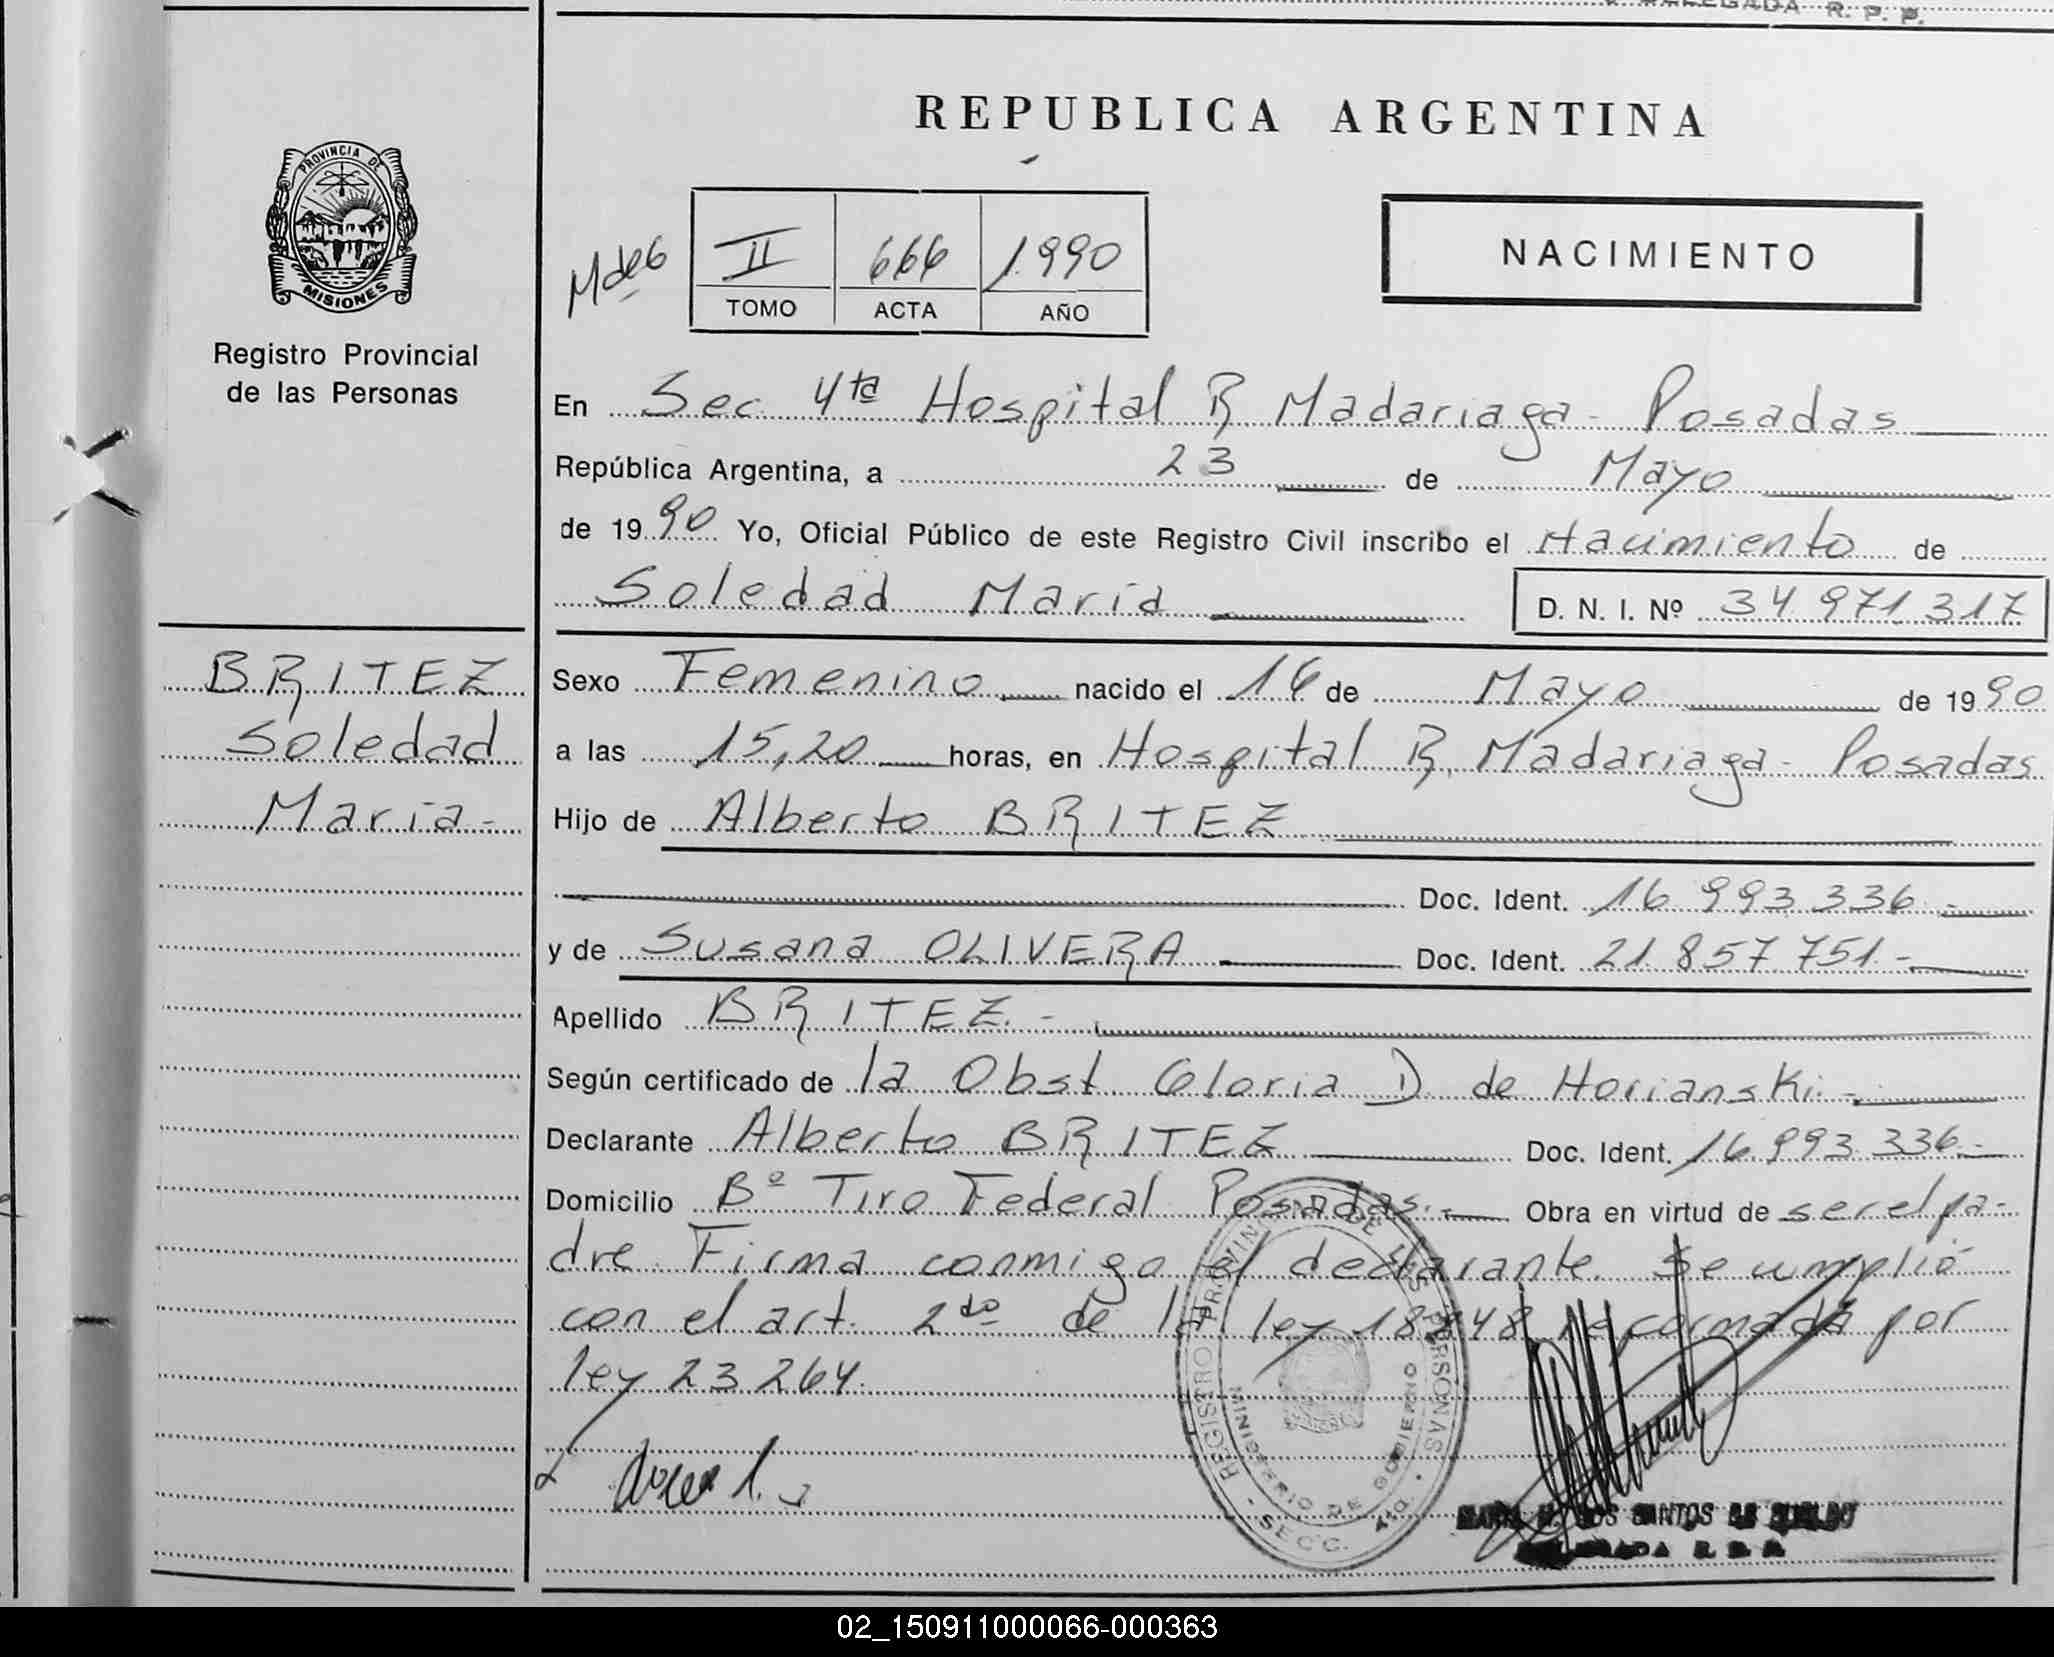 R. P. P.
REPUBLICA ARGENTINA
PROVINCIA DE
MISIONES
Registro Provincial
de las Personas
M de G
II 666 1990
TOMO ACTA AÑO
NACIMIENTO
En Sec 4ta Hospital R Madariaga - Posadas
República Argentina, a 23 de Mayo
de 1990 Yo, Oficial Público de este Registro Civil inscribo el Nacimiento de
Soledad María D. N. I. Nº 34 971 317
BRITEZ
Soledad
María -
Sexo Femenino nacido el 16 de Mayo de 1990
a las 15,20 horas, en Hospital R. Madariaga - Posadas
Hijo de Alberto BRITEZ
Doc. Ident. 16 993 336 -
y de Susana OLIVERA Doc. Ident. 21 857 751 -
Apellido BRITEZ. -
Según certificado de la Obst. Gloria D. de Horianski. -
Declarante Alberto BRITEZ Doc. Ident. 16 993 336 -
Domicilio Bº Tiro Federal Posadas. - Obra en virtud de ser el pa-
dre Firma conmigo el declarante. Se cumplió
con el art. 2do de la ley 18248 reformada por
ley 23 264.
REGISTRO PROVINCIAL DE LAS PERSONAS
MINISTERIO DE GOBIERNO
SECC. 4ta.
SANTOS DE
02_150911000066-000363